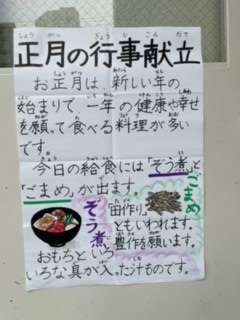 正月の行事献立
お正月は、新しい年の
始まりで、一年の健康や幸せ
を願って食べる料理が多い
です。
今日の給食には「ぞう煮」と
「ごまめ」が出ます。
ごまめ
「田作り」
ともいわれます。
豊作を願います。
ぞう煮
おもちといろ
いろな具が入った汁ものです。